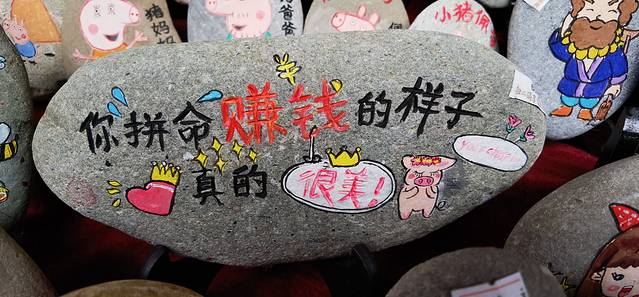 猪妈妈
爸爸
小猪佩
你拼命赚钱的样子
真的很美!